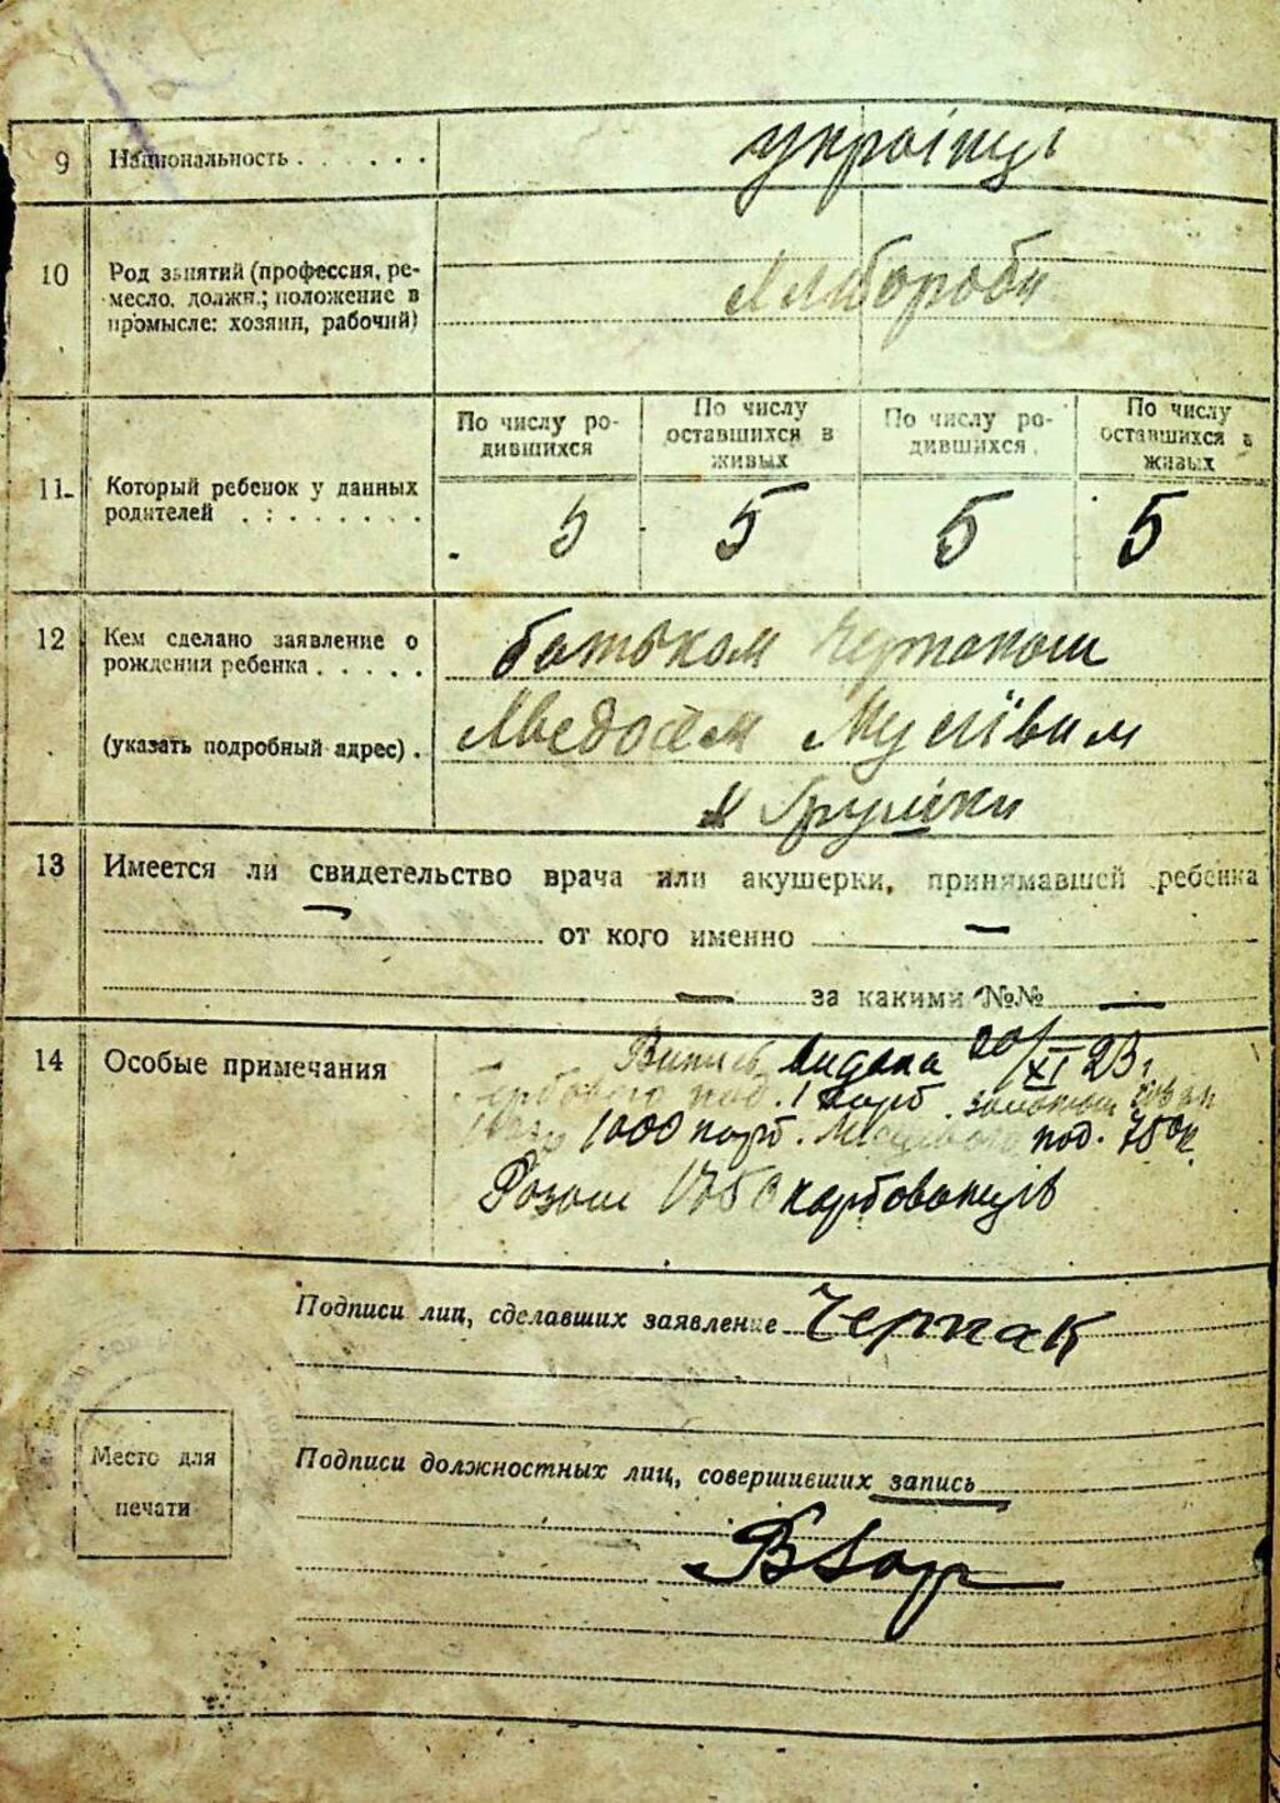 9 Национальность . . . . . . українці
10 Род занятий (профессия, ре-
месло, должн.; положение в
промысле: хозяин, рабочий)
хлібороби
11. Который ребенок у данных
родителей . : . . . . . .
По числу ро-
дившихся
По числу
оставшихся в
живых
По числу ро-
дившихся
По числу
оставшихся в
живых
5 5 5 5
12 Кем сделано заявление о
рождении ребенка . . . . .
(указать подробный адрес) .
батьком Черпаком
Мусіївим
м Грушки
13 Имеется ли свидетельство врача или акушерки, принимавшей ребенка
— от кого именно —
— за какими №№ —
14 Особые примечания
Випись видана 20/XI 23 г
Гербового под. 1 карб. золотом
1000 карб. Місцевого под. 750 к.
Разом 1750 карбованців
Подписи лиц, сделавших заявление Черпак
Подписи должностных лиц, совершивших запись
Место для
печати